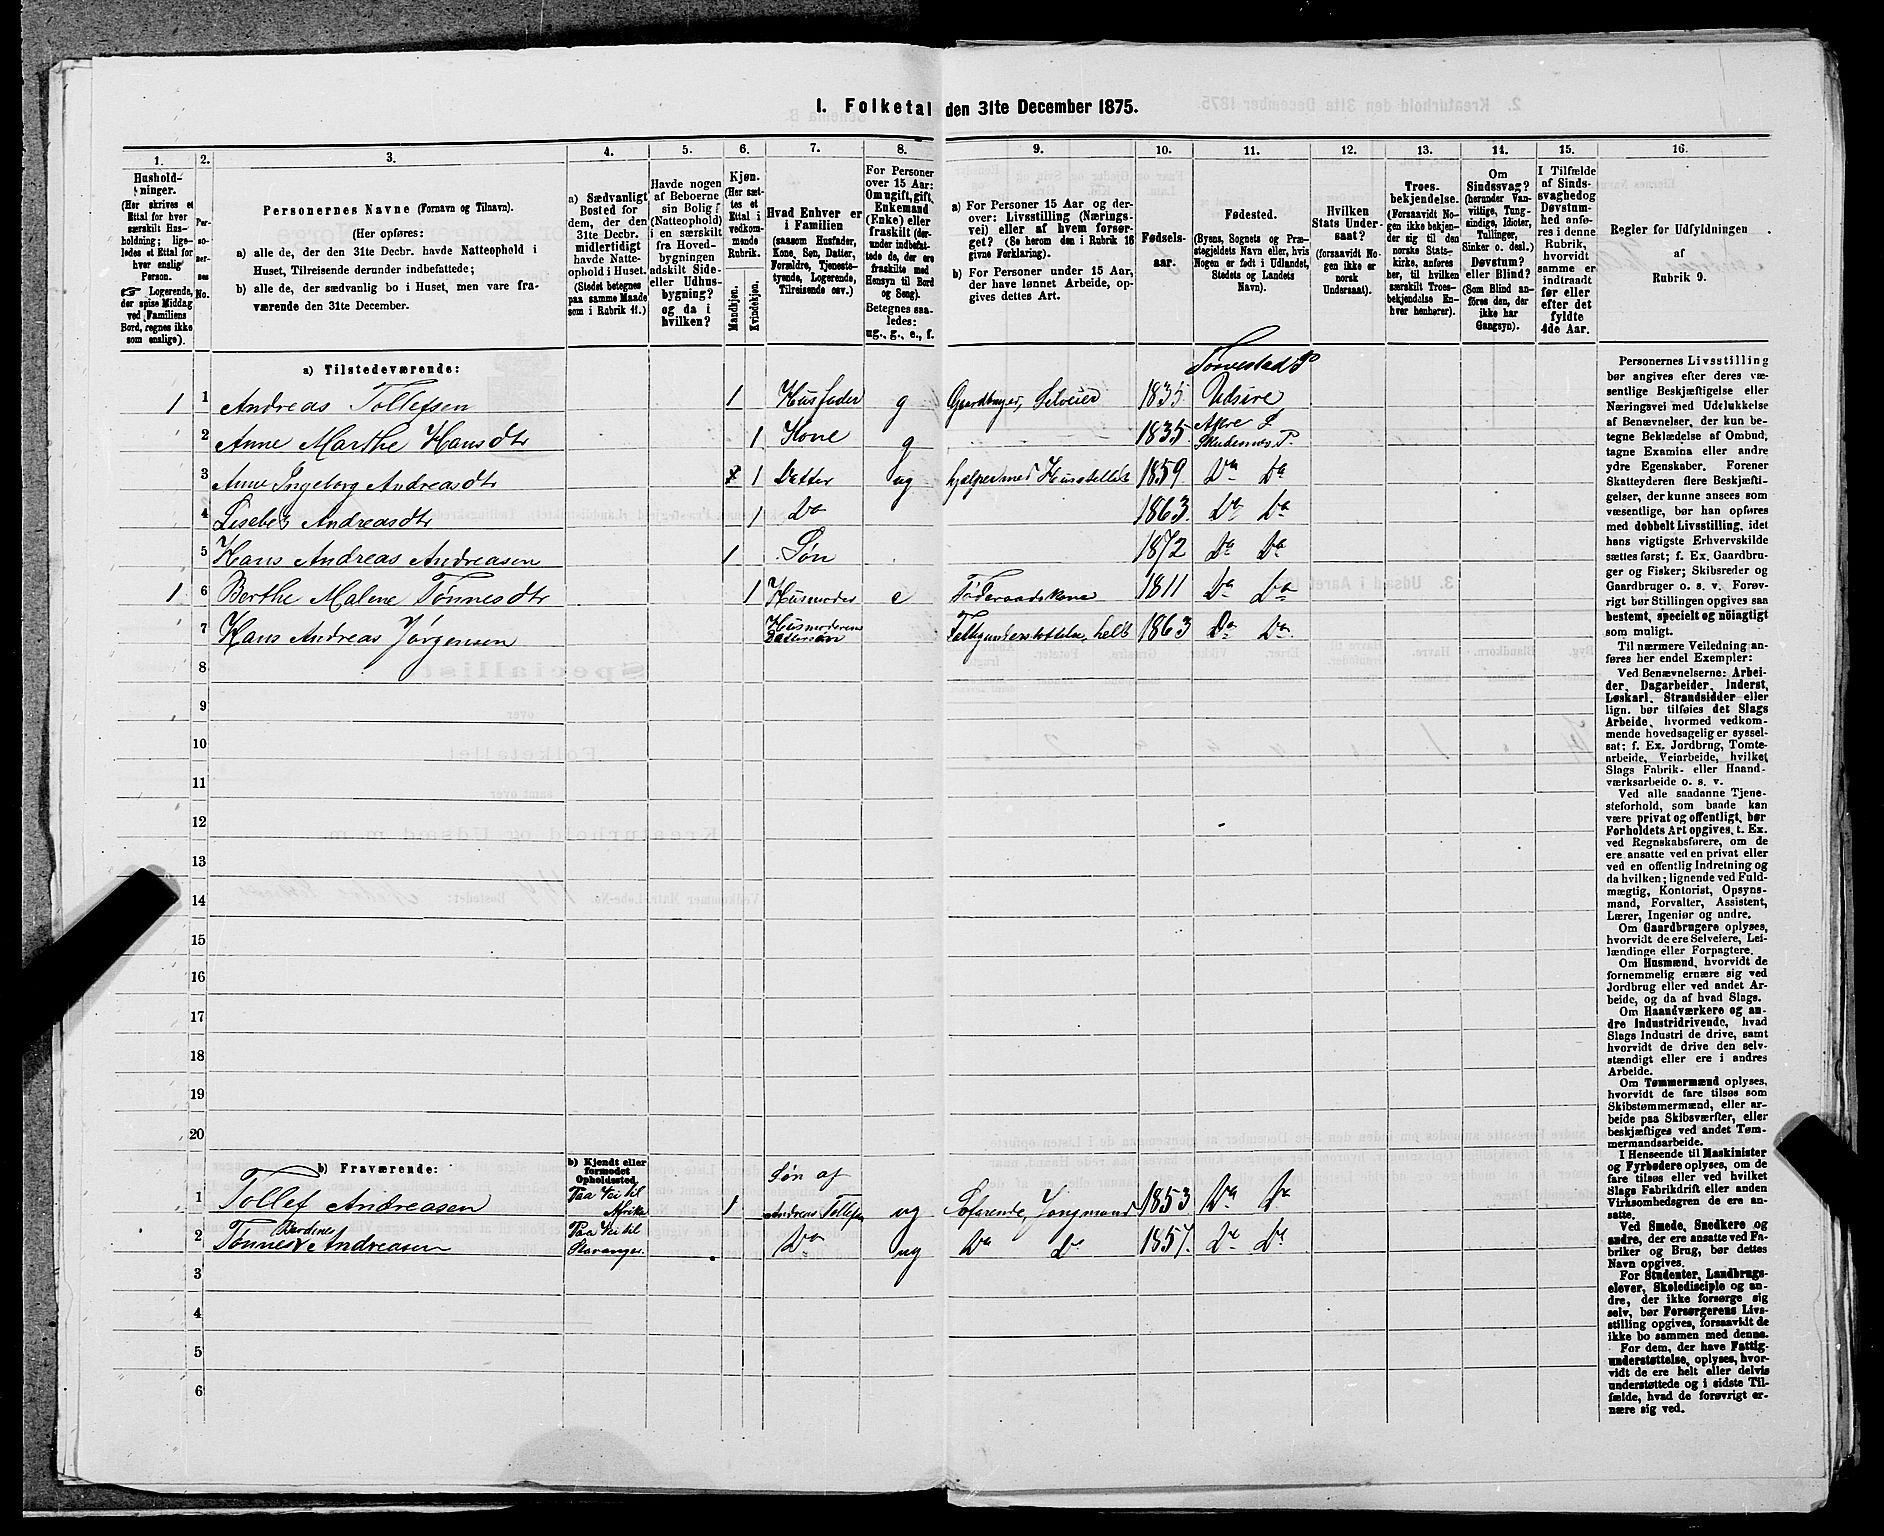 1. Folketal den 31te December 1875.
1. 2. 3. 4. 5. 6. 7. 8. 9. 10. 11. 12. 13. 14. 15. 16.
Hushold-
ninger.
(Her skrives et
Ettal for hver
særskilt Hus-
holdning; lige-
ledes et Ettal for
hver enslig
Person.
☞ Logerende,
der spise Middag
ved Familiens
Bord, regnes ikke
som enslige).
Per-
so-
ner-
nes
No.
Personernes Navne (Fornavn og Tilnavn).
(Her opføres:
a) alle de, der den 31te Decbr. havde Natteophold i
Huset, Tilreisende derunder indbefattede;
b) alle de, der sædvanlig bo i Huset, men vare fra-
værende den 31te December.
a) Sædvanligt
Bosted for
dem, der den
31te Decbr.
midlertidigt
havde Natte-
ophold i Huset.
(Stedet betegnes
paa samme Maade
som i Rubrik 11.)
Havde nogen
af Beboerne
sin Bolig
(Natteophold)
i en særskilt
fra Hoved-
bygningen
adskilt Side-
eller Udhus-
bygning?
og da i
hvilken?
Kjøn.
(Her sæt-
tes et
Ettal i
vedkom-
mende
Rubrik.
Mandkjøn.
Kvindekjøn.
Hvad Enhver er
i Familien
(saasom Husfader,
Kone, Søn, Datter,
Forældre, Tjeneste-
tyende, Logerende,
Tilreisende osv.)
For Personer
over 15 Aar:
Om ugift, gift,
Enkemand
(Enke) eller
fraskilt (der-
under indbefat-
tede de, der ere
fraskilte med
Hensyn til Bord
og Seng).
Betegnes saa-
ledes:
ug., g., e., f.
a) For Personer 15 Aar og der-
over: Livsstilling (Nærings-
vei) eller af hvem forsør-
get? (Se herom den i Rubrik 16
givne Forklaring).
b) For Personer under 15 Aar,
der have lønnet Arbeide, op-
gives dettes Art.
Fødsels-
aar.
Fødested.
(Byens, Sognets og Præ-
stegjeldets Navn eller, hvis
Nogen er født i Udlandet,
Stedets og Landets
Navn).
Hvilken
Stats Under-
saat?
(forsaavidt No-
gen ikke er
norsk
Undersaat).
Troes-
bekjendelse.
(Forsaavidt No-
gen ikke bekjen-
der sig til den
norske Stats-
kirke, anføres
her, til hvilken
særskilt Troes-
bekjendelse En-
hver henhører).
Om
Sindssvag?
(herunder Van-
vittige, Tung-
sindige, Idioter,
Tullinger,
Sinker o. desl.)
Døvstum?
eller Blind?
(Som Blind an-
føres den, der
ikke har
Gangsyn).
I Tilfælde
af Sinds-
svaghedog
Døvstum-
hed anfø-
res i denne
Rubrik,
hvorvidt
samme er
indtraadt
før eller
efter det
fyldte
4de Aar.
Regler for Udfyldningen
af
Rubrik 9.
a) Tilstedeværende:
Torvestad P
1 1 Andreas Tollefsen 1 Husfader g Gaardbruger, Selveier 1835 Udsire
2 Anne Marthe Hansdtr 1 Kone g 1835 Akre S. Skudesnes P.
3 Anne Ingeborg Andreasdtr 1 Datter ug hjælper med Husstellet 1859. Do Do
4 Lisebet Andreasdtr 1 Do 1863. Do Do
5 Hans Andreas Andreasen 1 Søn 1872 Do Do
1 6 Berthe Malene Tønnesdtr 1 Husmoder e Føderaadskone 1811 Do Do
7 Hans Andreas Jørgensen Husmoderens Dattersøn Fattigunderstøttelse, helt 1863 Do Do.
8
9
10
11
12
13
14
15
16
17
18
19
20
b) Fraværende:
b) Kjendt eller
formodet
Opholdssted.
1 Tollef Andreasen Paa Vei til Afrika 1 Søn af Andreas Tollefsen ug Søfarende, Jungmand 1853 Do Do
2 Tønnes Berdines Andreasen Paa Vei til Stavanger. Do ug Do Do 1857. Do Do
3
4
5
6
Personernes Livsstilling
bør angives efter deres væ-
sentlige Beskjæftigelse eller
Næringsvei med Udelukkelse
af Benævnelser, der kun be-
tegne Beklædelse af Ombud,
tagne Examina eller andre
ydre Egenskaber. Forener
Skatteyderen flere Beskjæfti-
gelser, der kunne ansees som
væsentlige, bør han opføres
med dobbelt Livsstilling, idet
hans vigtigste Erhvervskilde
sættes først; f. Ex. Gaardbru-
ger og Fisker; Skibsreder og
Gaardbruger o. s. v. Forøv-
rigt bør Stillingen opgives saa
bestemt, specielt og nøiagtigt
som muligt.
Til nærmere Veiledning an-
føres her endel Exempler:
Ved Benævnelserne: Arbei-
der, Dagarbeider, Inderst,
Løskarl, Strandsidder eller
lign. bør tilføies det Slags
Arbeide, hvormed vedkom-
mende hovedsagelig er syssel-
sat; f. Ex. Jordbrug, Tomte-
arbeide, Veiarbeide, hvilket
Slags Fabrik- eller Haand-
værksarbeide o. s. v.
Ved alle saadanne Tjene-
steforhold, som baade kan
være privat og offentligt, bør
Forholdets Art opgives, t. Ex.
ved Regnskabsførere, om de
ere ansatte ved en privat eller
ved en offentlig Indretning og
da hvilken; lignende ved Fuld-
mægtig, Kontorist, Opsyns-
mand, Forvalter, Assistent,
Lærer, Ingeniør og andre.
Om Gaardbrugere oplyses,
hvorvidt de ere Selveiere, Lei-
lændinge eller Forpagtere.
Om Husmænd, hvorvidt de
fornemmelig ernære sig ved
Jordbrug eller ved andet Ar-
beide, og da af hvad Slags.
Om Haandværkere og an-
dre industridrivende, hvad
Slags Industri de drive, samt
hvorvidt de drive den selv-
stændigt eller ere i andres
Arbeide.
Om Tømmermænd oplyses,
hvorvidt de fare tilsøs som
Skibstømmermænd, eller ar-
beide paa Skibsværfter, eller
beskjæftiges ved andet Tøm-
mermandsarbeide.
I Henseende til Maskinister
og Fyrbødere oplyses, om de
fare tilsøs eller ved hvilket
Slags Fabrikdrift eller anden
Virksomhedsgren de ere an-
satte.
Ved Smede, Snedkere og
andre, der ere ansatte ved Fa-
briker og Brug, bør dettes
Navn opgives.
For Studenter, Landbrugs-
elever, Skoledisciple og an-
dre, der ikke forsørge sig
selv, bør Forsørgerens Livs-
stilling opgives, forsaavidt de
ikke bo sammen med denne.
For dem, der have Fattig-
understøttelse, oplyses, hvor-
vidt de ere helt eller delvis
understøttede og i sidste Til-
fælde, hvad de forøvrigt er-
nære sig ved.